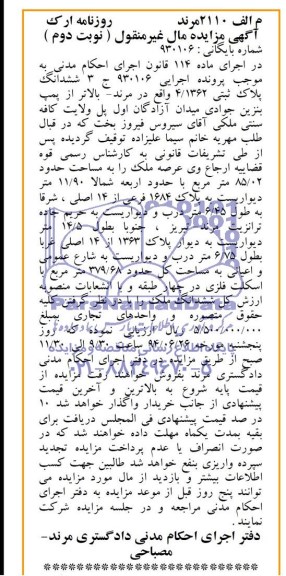 م الف ۲۱۱۰مرند روزنامه ارک
آگهی مزایده مال غیرمنقول ( نوبت دوم )
شماره بایگانی : ۹۳۰۱۰۶
در اجرای ماده ۱۱۴ قانون اجرای احکام مدنی به
موجب پرونده اجرایی ۹۳۰۱۰۶ ج ۳ ششدانگ
پلاک ثبتی ۴/۱۳۶۲ واقع در مرند- بالاتر از پمپ
بنزین جوادی میدان آزادگان اول پل ولایت کافه
سنتی ملکی آقای سیروس فیروز بخت که در قبال
طلب مهریه خانم سیما علیزاده توقیف گردیده پس
از طی تشریفات قانونی به کارشناس رسمی قوه
قضاییه ارجاع وی عرصه ملک را به مساحت حدود
۸۵/۰۲ متر مربع با حدود اربعه شمالا ۱۱/۹۰ متر
دیواریست به پلاک ۱۶۸۴ فرعی از ۱۴ اصلی ، شرقا
به طول ۶/۴۵ متر درب و دیواریست به حریم جاده
ترانزیت مرند تبریز ، جنوبا بطول ۱۴/۵ متر
دیواریست به دیوار پلاک ۱۳۶۳ از ۱۴ اصلی غربا
بطول ۶/۷۵ متر درب و دیواریست به شارع عمومی
و اعیانی به مساحت کل حدود ۳۷۹/۶۸ متر مربع با
اسکلت فلزی در چهار طبقه و با انشعابات منصوبه
ارزش کل ششدانگ ملک را با در نظر گرفتن کلیه
حقوق متصوره و واحدهای تجاری بمبلغ
۵/۵۰۰/۰۰۰/۰۰۰ ریال ارزیابی نموده که روز
پنجشنبه مورخه ۹۴/۰۶/۲۶ ساعت ۹/۳۰ الی ۱۱/۳۰
صبح از طریق مزایده در دفتر اجرای احکام مدنی
دادگستری مرند بفروش خواهد رفت مزایده از
قیمت پایه شروع به بالاترین و آخرین قیمت
پیشنهادی از جانب خریدار واگذار خواهد شد ۱۰
در صد قیمت پیشنهادی فی المجلس دریافت برای
بقیه بمدت یکماه مهلت داده خواهد شد که در
صورت انصراف یا عدم پرداخت مزایده تجدید
سپرده واریزی بنفع خواهد شد طالبین جهت کسب
اطلاعات بیشتر و بازدید از مال مورد مزایده می
توانند پنج روز قبل از موعد مزایده به دفتر اجرای
احکام مدنی مراجعه و در جلسه مزایده شرکت
نمایند .
دفتر اجرای احکام مدنی دادگستری مرند-
مصباحی
۰۲۱-۸۸۳۴۹۶۷۰-۵